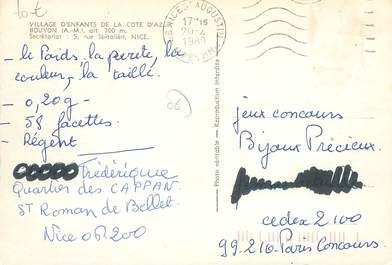 10 €
VILLAGE D'ENFANTS DE LA COTE D'AZ
BOUYON (A.-M.), alt. 700 m.
Secrétariat : 5, rue Spitaliéri, NICE.
NICE ST AUGUSTIN
17H15
20-2
1989
- le Poids, la pureté, la
couleur, la taille.
- 0,20g -
- 58 facettes.
- Régent
Frédérique
Quartier des CAPPAN.
ST Roman de Bellet.
Nice 06200
06
Photo véritable — Reproduction interdite
jeux concours
Bijoux Précieux.
cedex 2100
99.216 - Paris Concours.